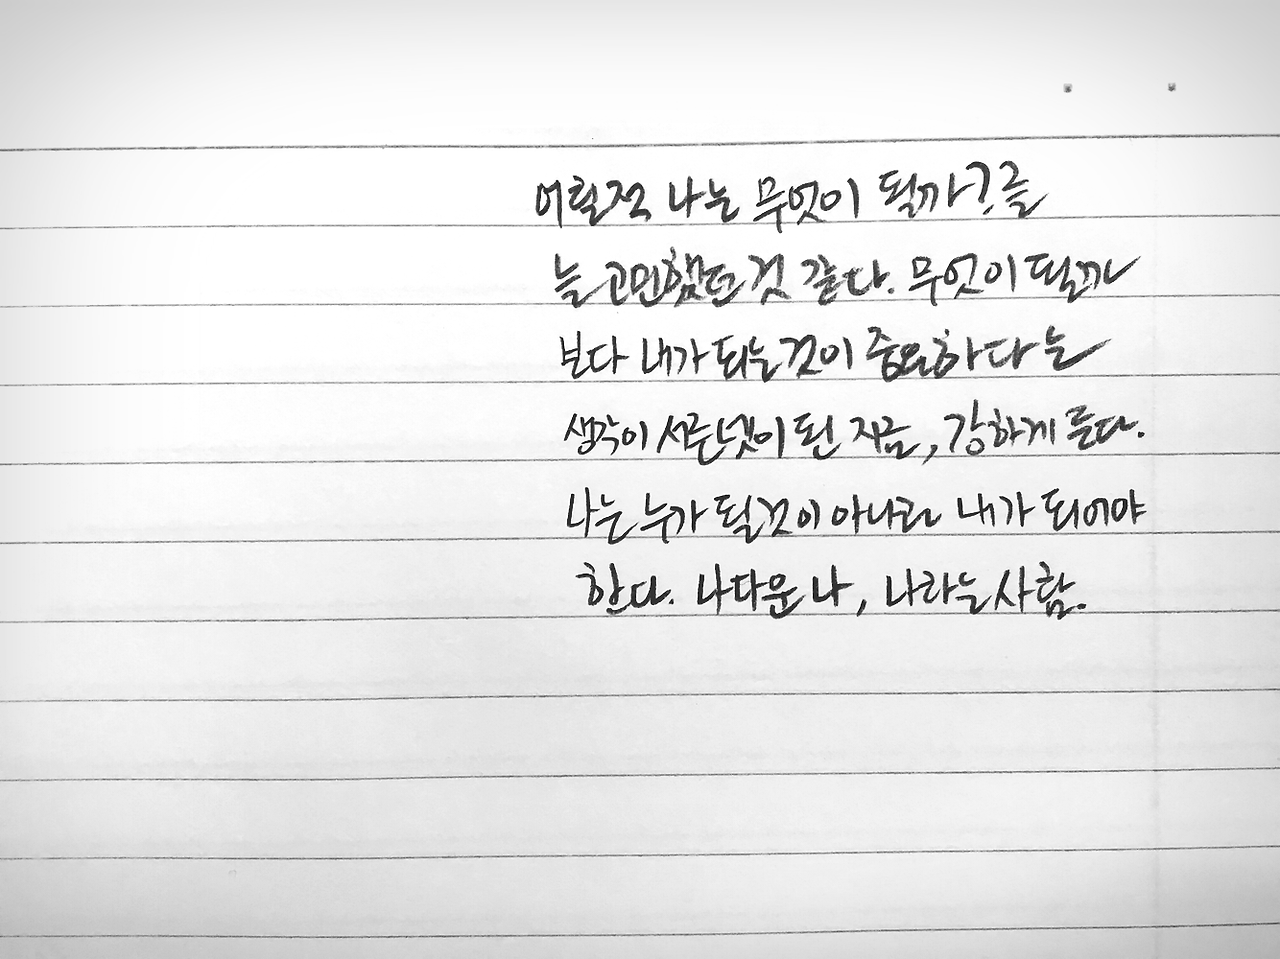 어릴적 나는 무엇이 될까?를
늘 고민했던 것 같다. 무엇이 될까
보다 내가 되는것이 중요하다는
생각이 서른넷이 된 지금, 강하게 든다.
나는 누가 될것이 아니라 내가 되어야
한다. 나다운 나, 나라는 사람.